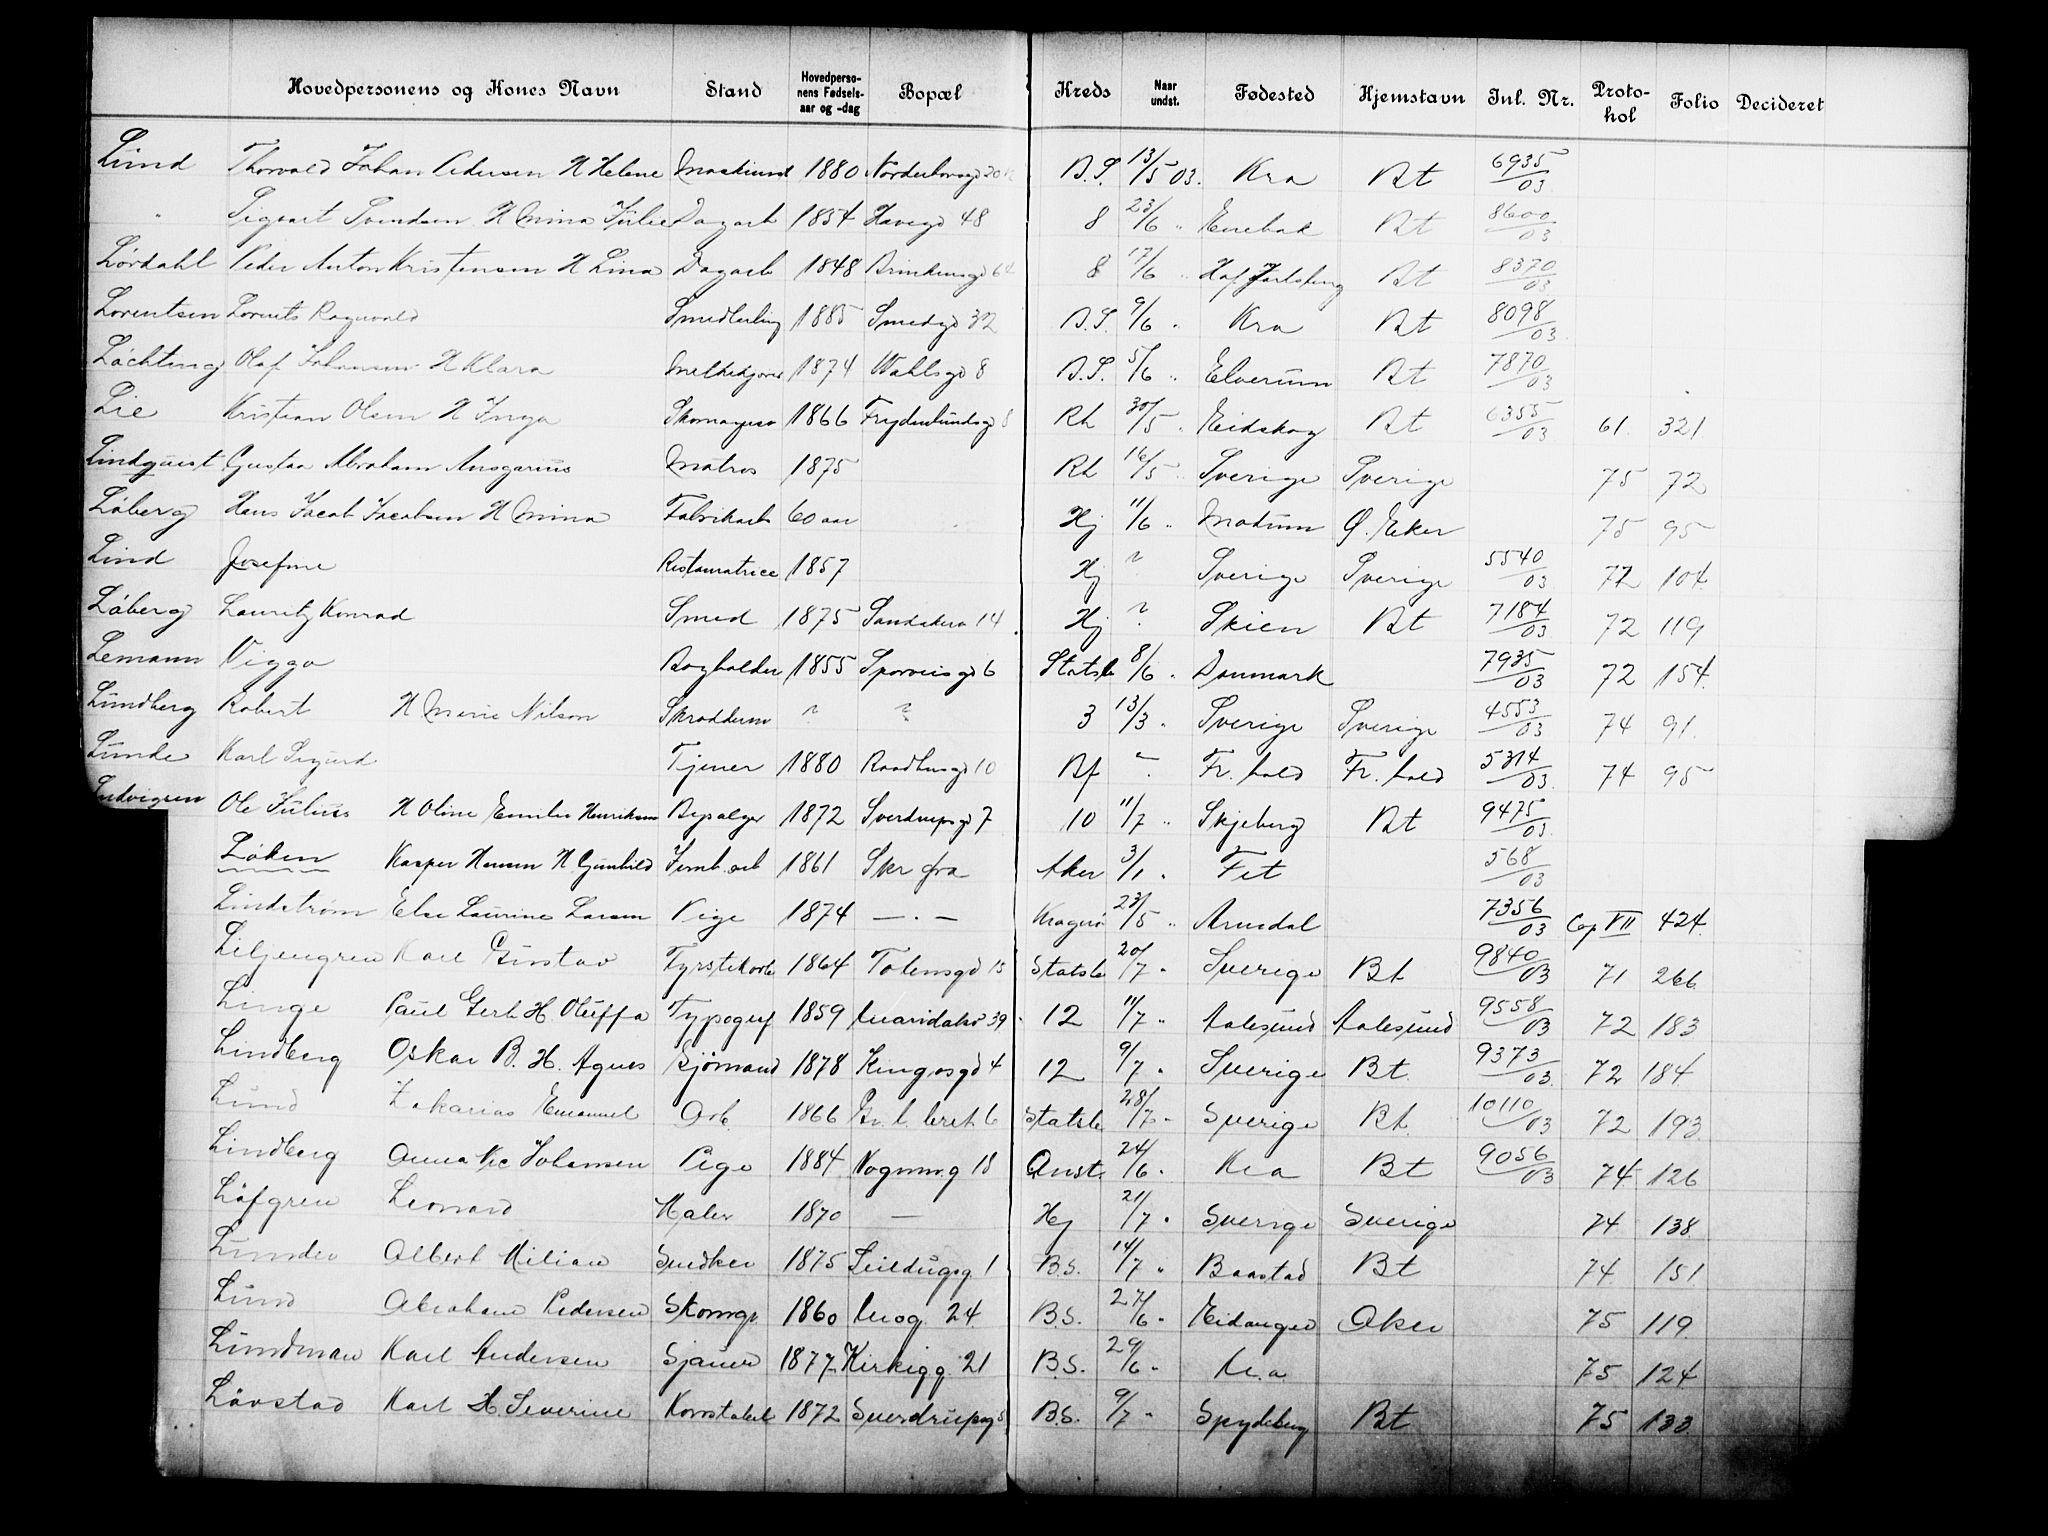 Hovedpersonens og Kones Navn Stand Hovedperso-nens Fødsels-aar og -dag Bopæl Kreds Naar undst. Fødested Hjemstavn Inl. Nr. Proto-kol Folio Decideret
Lund Thorvald Johan Pedersen H Helene Maskinist 1880 Nordenborsgd 20 B.S. 13/5 03. Kra Bt 6935/03
" Sigvart Svendsen H Mina Julie Dagarb 1854 Havegd 48 8 23/6 " Enebak Bt 8600/03
Lørdahl Peder Anton Kristensen H Lina Dagarb 1848 Brinkensgd 64 8 17/6 " Hof Jarlsberg Bt 8370/03
Lorentsen Lorents Ragnvald Smedlerling 1885 Smedgd 32 B.S. 9/6 " Kra Bt 8098/03
Lächting Olaf Johansen H Klara Melkekjører 1874 Wahlsgd 8 B.S. 5/6 " Elverum Bt 7870/03
Lie Kristian Olsen H Inga Skomagersv 1866 Frydenlundsgd 8 Rh 30/5 " Eidskog Bt 6355/03 61. 321
Lindquist Gustaa Abraham Ansgarius Matros 1875 Rh 16/5 " Sverige Sverige 75 72
Løberg Hans Jacob Jacobsen H Mina Fabrikarb 60 aar Hj 11/6 " Modum Ø. Eker 75 95
Lind Josefine Restauratrice 1857 Hj ? Sverige Sverige 5540/03 72 104
Løberg Lauritz Konrad Smed 1875 Sandakerv 14 Hj ? Skien Bt 7184/03 72 119
Lemann Viggo Bogholder 1855 Sporveisgd 6 Statsb 8/6 " Danmark 7935/03 72 154
Lundberg Robert H Marie Nilson Skrædderm ? ? 3 13/3 " Sverige Sverige 4553/03 74 91.
Lunde Karl Sigurd Tjener 1880 Raadhusgd 10 Bf - Fr. hald Fr. hald 5314/03 74 95
Ludvigsen Ole Julius H Oline Emilie Henriksen Bysælger 1872 Sverdrupsgd 7 10 11/7 " Skjeberg Bt 9475/03
Løken Kasper Hansen H Gunhild Jernb. arb 1861 Skr fra Aker 3/1 . Fet 568/03
Lindstrøm Else Laurine Larsen Pige 1874 — . — Kragerø 23/5 " Arendal 7356/03 Cop VII 424
Liljengren Karl Gustav Fyrstikarb 1864 Totensgd 15 Statsb 20/7 " Sverige Bt 9840/03 71 266
Linge Paul Gerh H. Oluffa Typogrf 1859 Maridalsv 39 12 11/7 " Aalesund Aalesund 9558/03 72 183
Lindberg Oskar B. H. Agnes Sjømand 1878 Kingosgd 4 12 9/7 " Sverige Bt. 9373/03 72 184
Lund Zakarias Emanuel Arb. 1866 Statsb 28/7 " Sverige Bt. 10110/03 72 193
Lindberg Anna Kr. Johansen Pige 1884 18 Anst. 24/6 " Kra Bt 9056/03 74 126
Löfgren Leonard Maler 1870 — Hj 21/7 " Sverige Sverige 74 138
Lunder Albert Milian Snedker 1875 1 B.S. 14/7 " Baastad Bt 74 151
Lund Abraham Pedersen Skomgr. 1860 24 B.S. 27/6 " Eidanger Aker 75 119
Lundman Karl Andersen Sjauer 1877 Kirkigg. 21 B.S. 29/6 " Kra 75 124
Løvstad Karl H. Severine Konstabel 1872 Sverdrupsg B.S. 9/7 " Spydeberg Bt 75 133